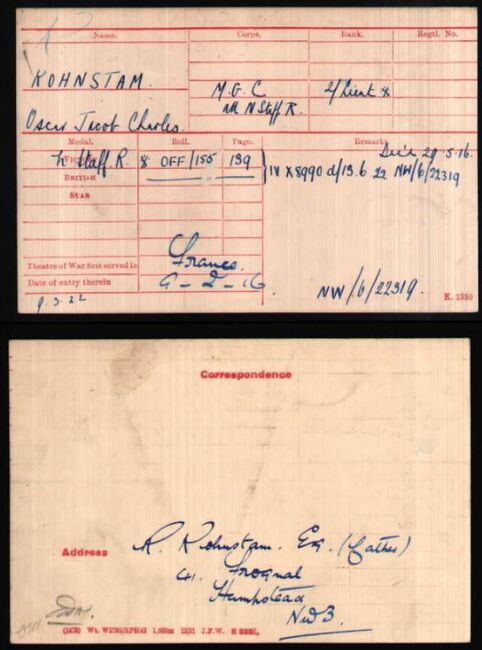 Name. Corps. Rank. Regtl. No.
KOHNSTAM. M.G.C 2/Lieut x
Oscar Jacob Charles. N Staff R.
Medal. Roll. Page. Remarks
Died 29.5.16.
VICTORY N Staff. R. x OFF/155 139 IV X8990 d/13.6.22 NW/6/22319
BRITISH " "
STAR
Theatre of War first served in France.
Date of entry therein 9-2-16
9.3.22 NW/6/22319. K. 1380
Correspondence
Address R. Kohnstam. Esq. (Father)
41. Frognal
Hampstead
NW3.
1,000m J.P.W.